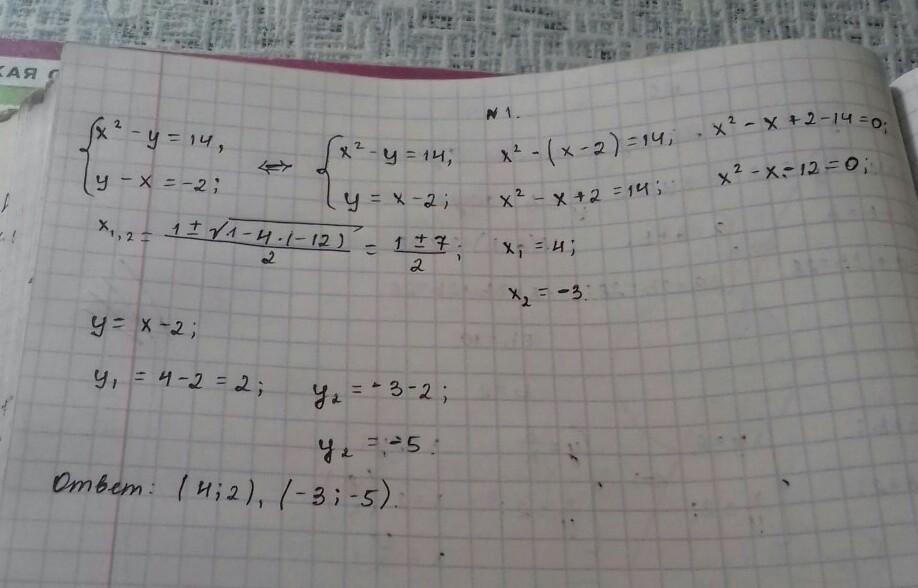 КАЯ
№1.
{x² - y = 14, ⇔ {x² - y = 14; x² - (x - 2) = 14; x² - x + 2 - 14 = 0;
{y - x = -2; {y = x - 2; x² - x + 2 = 14; x² - x - 12 = 0;
x₁,₂ = (1 ± √(1 - 4·(-12)))/2 = (1 ± 7)/2; x₁ = 4;
x₂ = -3.
y = x - 2;
y₁ = 4 - 2 = 2; y₂ = -3 - 2;
y₂ = -5.
Ответ: (4; 2), (-3; -5).